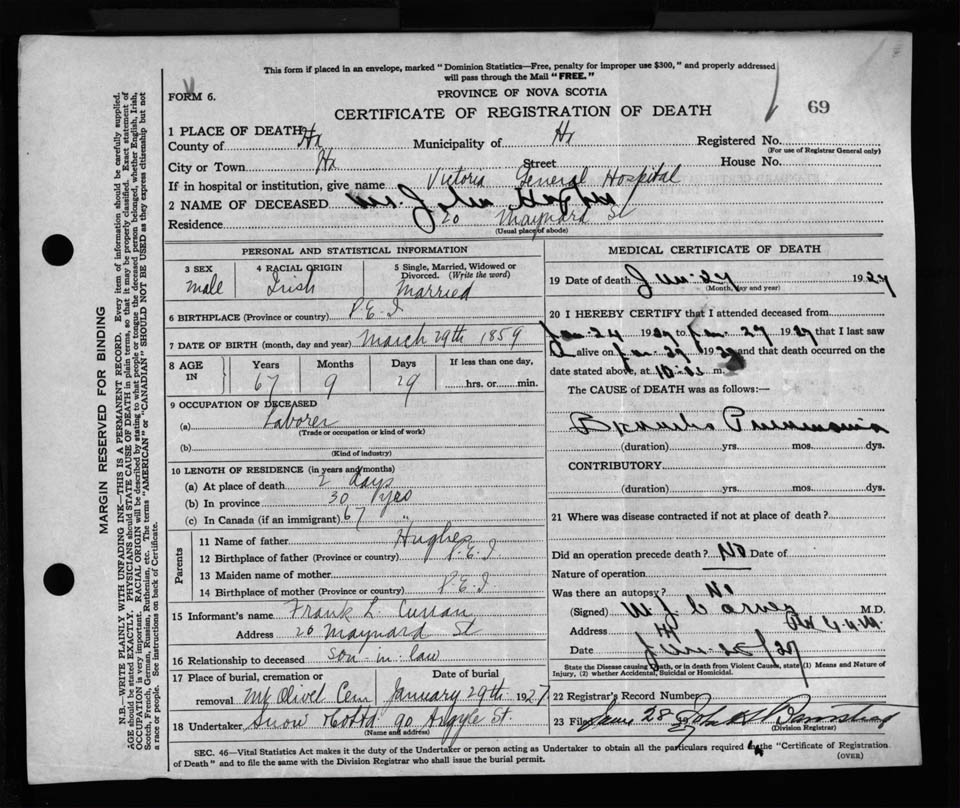 This form if placed in an envelope, marked "Dominion Statistics—Free, penalty for improper use $300," and properly addressed
will pass through the Mail "FREE."
FORM 6.
PROVINCE OF NOVA SCOTIA
CERTIFICATE OF REGISTRATION OF DEATH
69
1 PLACE OF DEATH
County of Hx Municipality of Hx Registered No.
(For use of Registrar General only)
City or Town Hx Street House No.
If in hospital or institution, give name Victoria General Hospital
2 NAME OF DECEASED John
Residence 20 Maynard St
(Usual place of abode)
PERSONAL AND STATISTICAL INFORMATION
3 SEX 4 RACIAL ORIGIN 5 Single, Married, Widowed or
Divorced. (Write the word)
Male Irish Married
6 BIRTHPLACE (Province or country) P.E.I
7 DATE OF BIRTH (month, day and year) March 29th 1859
8 AGE IN Years Months Days If less than one day,
67 9 29 hrs. or min.
9 OCCUPATION OF DECEASED
(a) Laborer
(Trade or occupation or kind of work)
(b)
(Kind of industry)
10 LENGTH OF RESIDENCE (in years and months)
(a) At place of death 2 days
(b) In province 30 yrs
(c) In Canada (if an immigrant) 67 "
Parents
11 Name of father Hughes
12 Birthplace of father (Province or country) P.E.I
13 Maiden name of mother
14 Birthplace of mother (Province or country) P.E.I
15 Informant's name Frank L. Curran
Address 20 Maynard St
16 Relationship to deceased son in law
17 Place of burial, cremation or Date of burial
removal Mt Olivet Cem January 29th 1927
18 Undertaker Snow & Co Ltd 90 Argyle St.
(Name and address)
MEDICAL CERTIFICATE OF DEATH
19 Date of death Jan 27 1927
(Month, day and year)
20 I HEREBY CERTIFY that I attended deceased from
Jan 24 1927 to Jan 27 1927 that I last saw
alive on Jan 27 19 and that death occurred on the
date stated above, at m.
The CAUSE of DEATH was as follows:—
Broncho Pneumonia
(duration) yrs. mos. dys.
CONTRIBUTORY
(duration) yrs. mos. dys.
21 Where was disease contracted if not at place of death?
Did an operation precede death? No Date of
Nature of operation
Was there an autopsy? No
(Signed) M.D.
Address
Date
State the Disease causing Death, or in death from Violent Causes, state (1) Means and Nature of
Injury, (2) whether Accidental, Suicidal or Homicidal.
22 Registrar's Record Number
23 Filed Jany 28 19
(Division Registrar)
SEC. 46—Vital Statistics Act makes it the duty of the Undertaker or Person acting as Undertaker to obtain all the particulars required in the "Certificate of Registration
of Death" and to file the same with the Division Registrar who shall issue the burial permit.
(OVER)
MARGIN RESERVED FOR BINDING
N.B.—WRITE PLAINLY WITH UNFADING INK—THIS IS A PERMANENT RECORD. Every item of information should be carefully supplied.
AGE should be stated EXACTLY. PHYSICIANS should STATE CAUSE OF DEATH in plain terms, so that it may be properly classified. Exact statement of
OCCUPATION is very important. RACIAL ORIGIN will be described by stating to what people or tongue the deceased person belonged, whether English, Irish,
Scotch, French, German, Russian, Ruthenian, etc. The terms "AMERICAN" or "CANADIAN" SHOULD NOT BE USED as they express citizenship but not
a race or people. See instructions on back of Certificate.